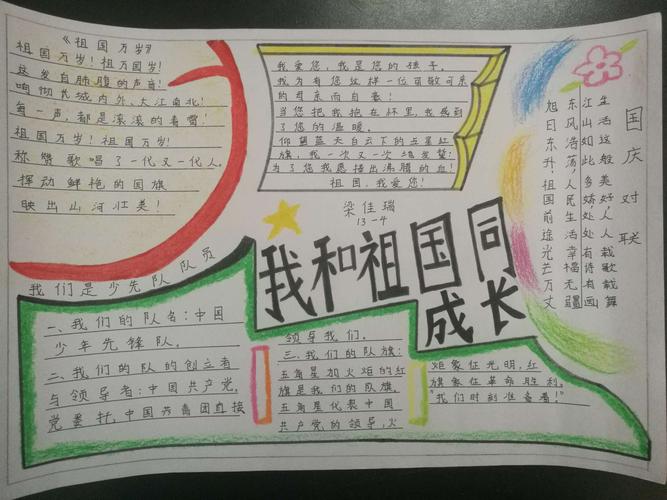 《祖国万岁》
祖国万岁！祖万国岁！
这发自肺腹的声音！
响彻长城内外、大江南北！
每一声，都是滚滚的春雷！
祖国万岁！祖国万岁！
称赞歌唱了一代又一代人。
挥动鲜艳的国旗
映出山河壮美！
我爱您，我是您的孩子。
我为有您这样一位可敬可亲
的母亲而自豪！
当您把我抱在怀里，我感到
了您的温暖。
仰望蓝天白云下的五星红
旗，我一次又一次地发誓：
为了您我愿捂出沸腾的血！
祖国，我爱您！
梁佳瑞
13-4
国庆对联
生活这般美好人人载歌载舞
江山如此多娇处处有诗有画
东风浩荡，人民生活幸福无疆
旭日东升，祖国前途光芒万丈
我和祖国同
成长
我们是少先队队员
一、我们的队名：中国
少年先锋队。
二、我们的队的创立者
与领导者：中国共产党，
党委托，中国共青团直接
领导我们。
三、我们的队旗：
五角星加火炬的红
旗是我们的队旗。
五角星代表中国
共产党的领导，火
炬象征光明，红
旗象征革命胜利。
"我们时刻准备着！"